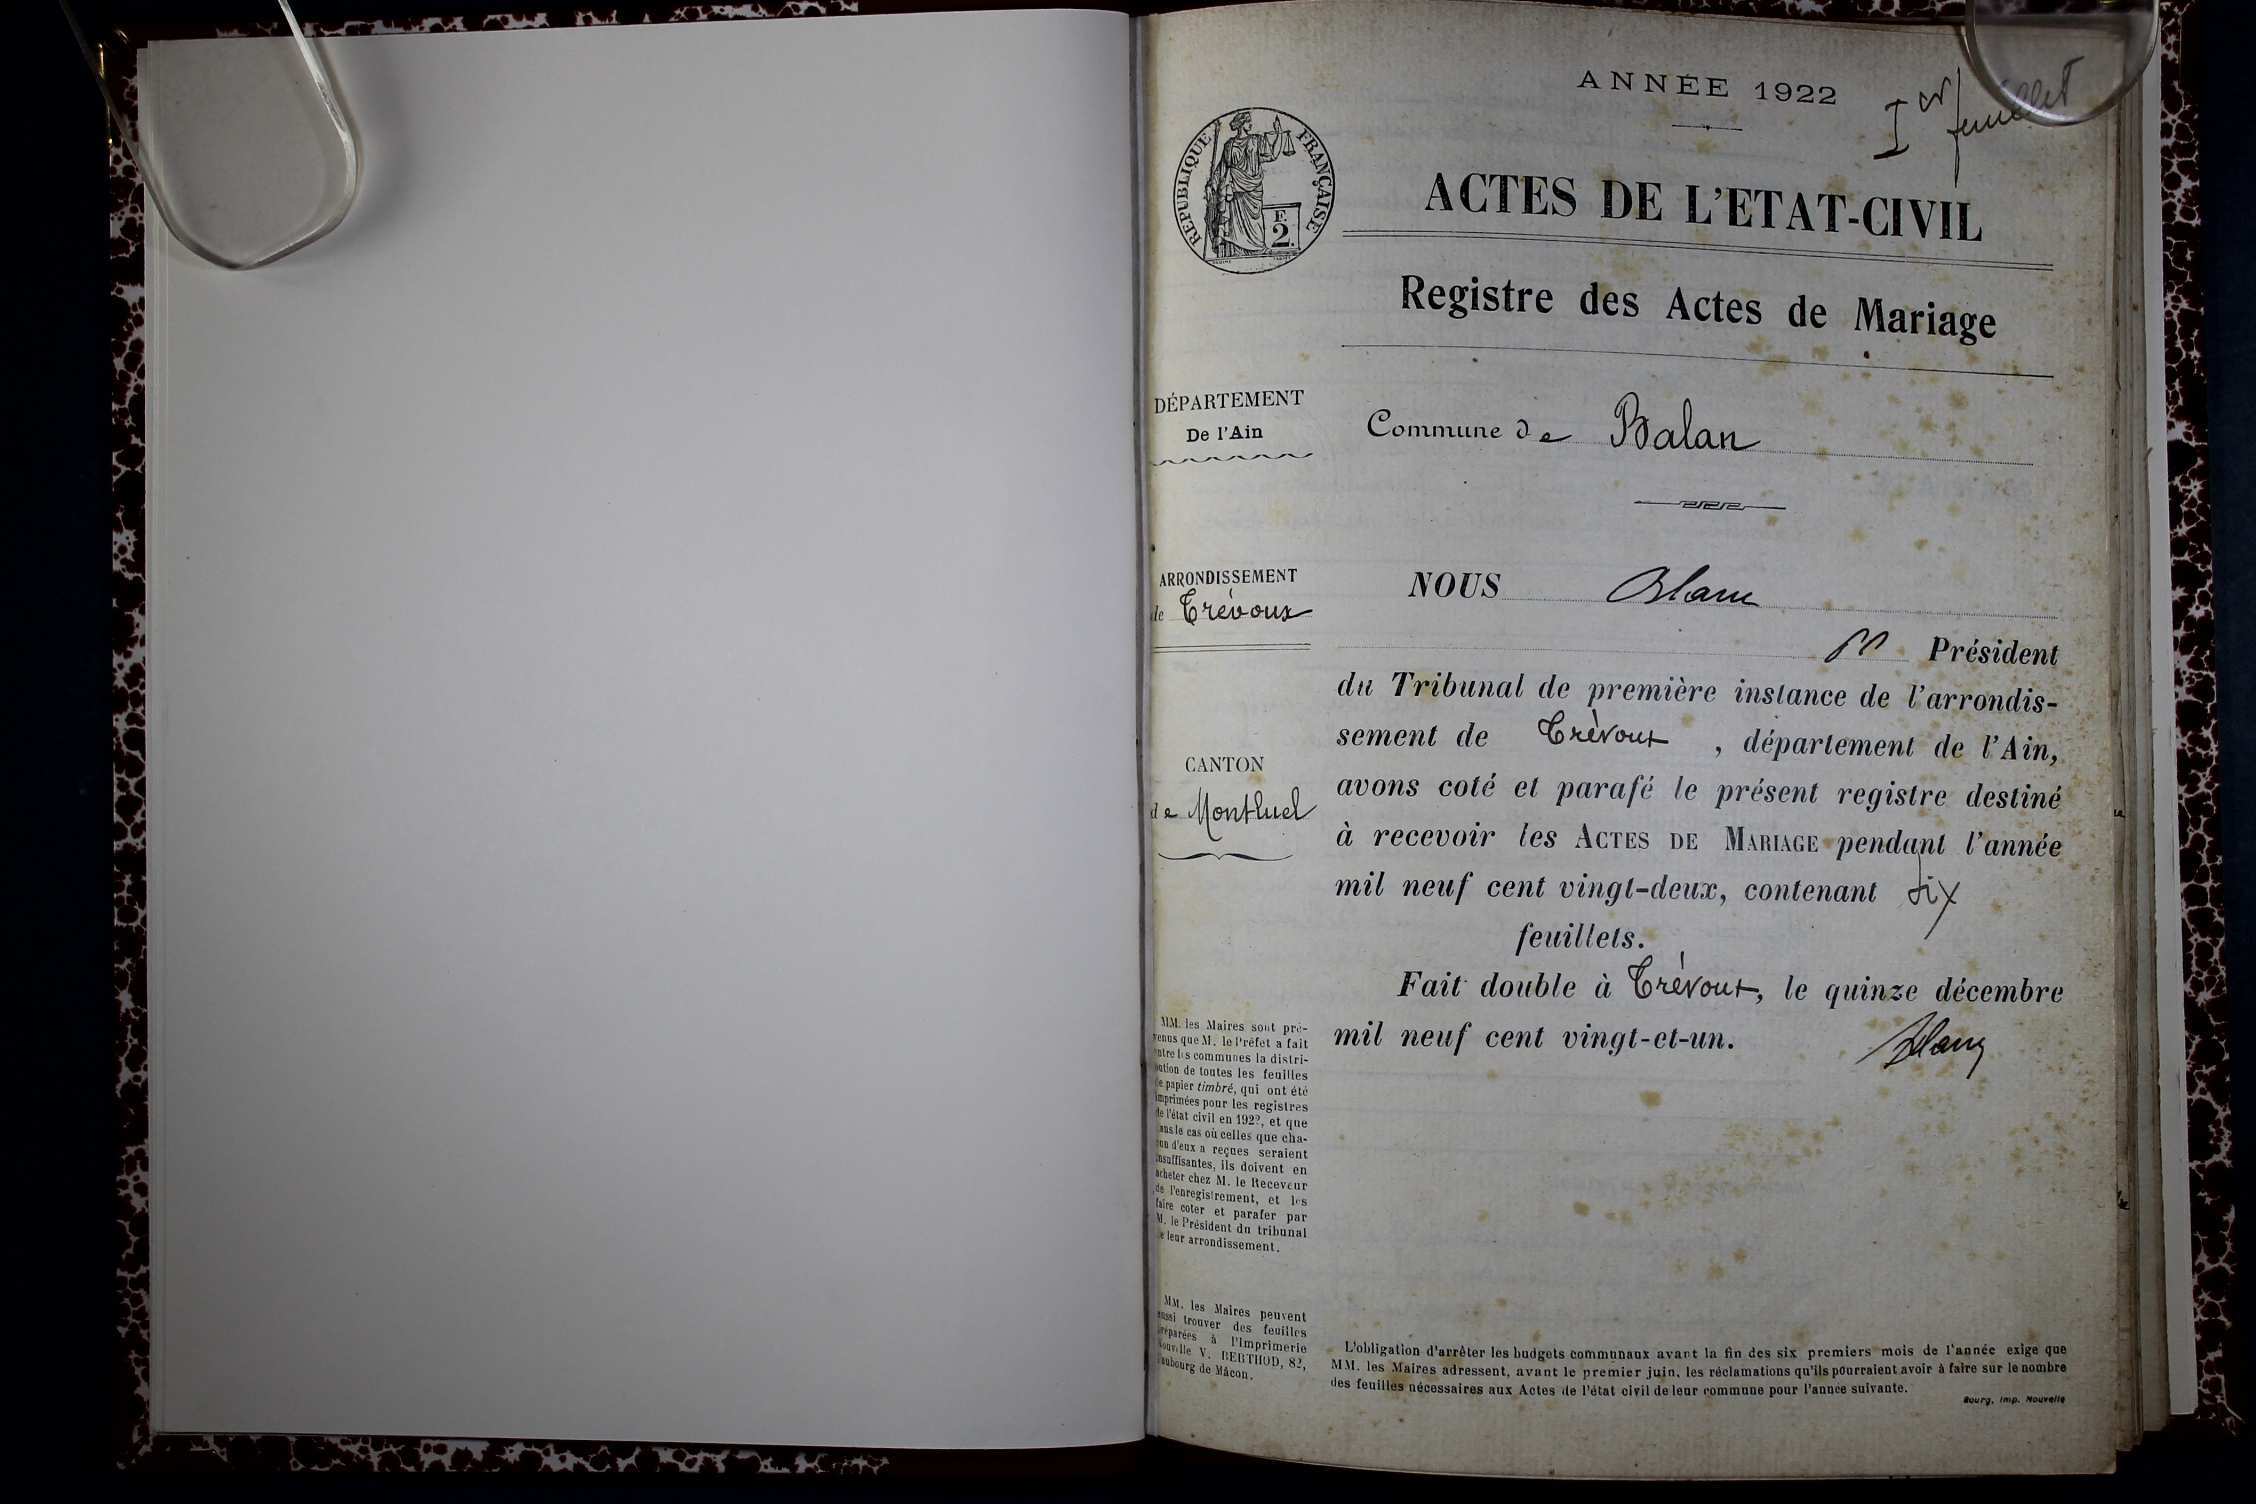 ANNÉE 1922
Ier feuillet
RÉPUBLIQUE FRANÇAISE
F.
2.
ACTES DE L'ETAT-CIVIL
Registre des Actes de Mariage
DÉPARTEMENT
De l'Ain
Commune de Balan
ARRONDISSEMENT
de Trévoux
CANTON
de Montluel
NOUS Blanc
Président
du Tribunal de première instance de l'arrondis-
sement de Trévoux, département de l'Ain,
avons coté et parafé le présent registre destiné
à recevoir les ACTES DE MARIAGE pendant l'année
mil neuf cent vingt-deux, contenant six
feuillets.
Fait double à Trévoux, le quinze décembre
mil neuf cent vingt-et-un.
Blanc
MM. les Maires sont pré-
venus que M. le Préfet a fait
entre les communes la distri-
bution de toutes les feuilles
de papier timbré, qui ont été
imprimées pour les registres
de l'état civil en 1922, et que
dans le cas où celles que cha-
cun d'eux a reçues seraient
insuffisantes, ils doivent en
acheter chez M. le Receveur
de l'enregistrement, et les
faire coter et parafer par
M. le Président du tribunal
de leur arrondissement.
MM. les Maires peuvent
aussi trouver des feuilles
préparées à l'Imprimerie
Nouvelle V. BERTHOD, 82,
faubourg de Mâcon.
L'obligation d'arrêter les budgets communaux avant la fin des six premiers mois de l'année exige que
MM. les Maires adressent, avant le premier juin, les réclamations qu'ils pourraient avoir à faire sur le nombre
des feuilles nécessaires aux Actes de l'état civil de leur commune pour l'année suivante.
Bourg, Imp. Nouvelle